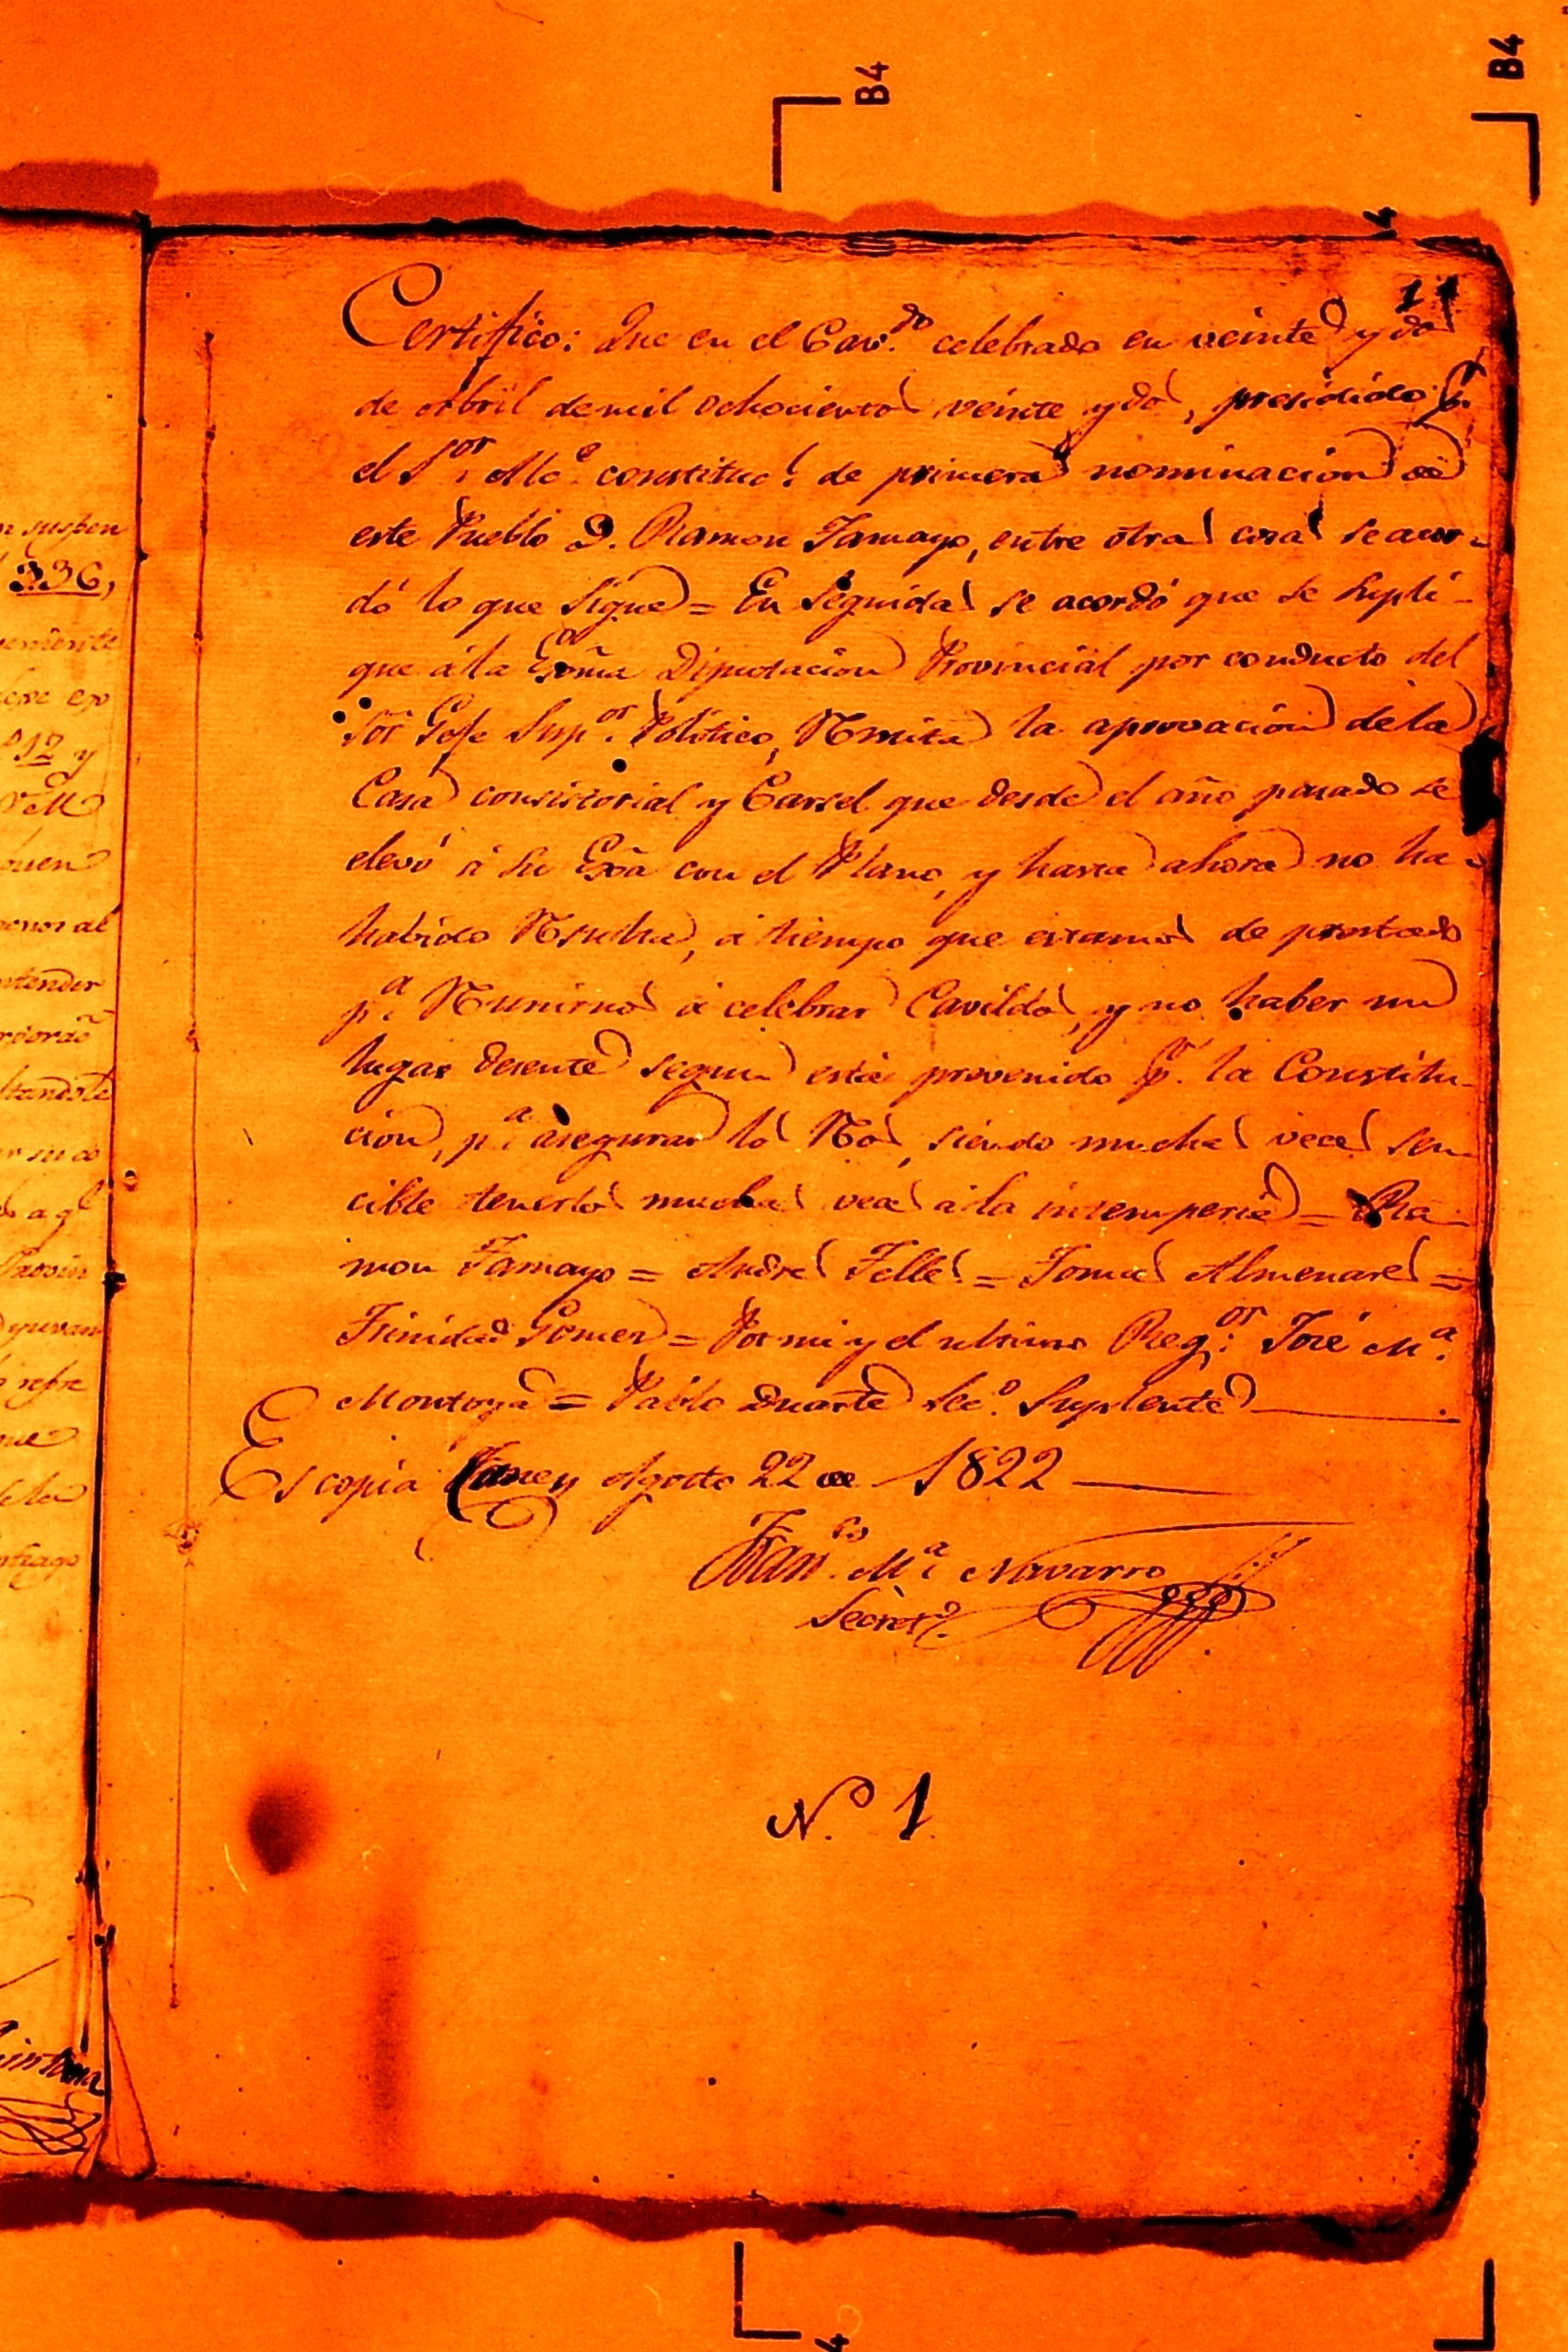 B4
B4
11
Certifico: Que en el Cav.do celebrado en veinte y dos
de Abril de mil ochocientos veinte y dos, presidido p.r
el S.or Alc.e constituc.l de primera nominacion de
este Pueblo D. Ramon Tamayo, entre otras cosas se acor-
dó lo que sigue = En seguida se acordó que se supli-
que á la Exma Diputacion Provincial por conducto del
Sor Gefe Sup.or Politico, Remita la aprovacion de la
Casa consistorial y Carsel que desde el año pasado se
elevó á Su Exa con el Plano, y hasta ahora no ha
habido Resulta, á tiempo que estamos de prestado
p.a Reunirnos á celebrar Cavildos, y no haber un
lugar desente segun está prevenido p.r la Constitu-
cion, p.a asegurar los Reos, siendo muchas veces sen-
cible tenerlos muchas veces á la intemperie = Ra-
mon Tamayo = Andres Telles = Tomas Almenares =
Trinidad Gomes = Por mi y el ultimo Reg.or José M.a
Montoya = Pablo Duarte Sec.o Suplente
Es copia Caney Agosto 22 de 1822
Fran.co M.a Navarro
Secret.o
N.o 1
n suspen
336,
12 y
buen
menor al
ntender
Provin
repre